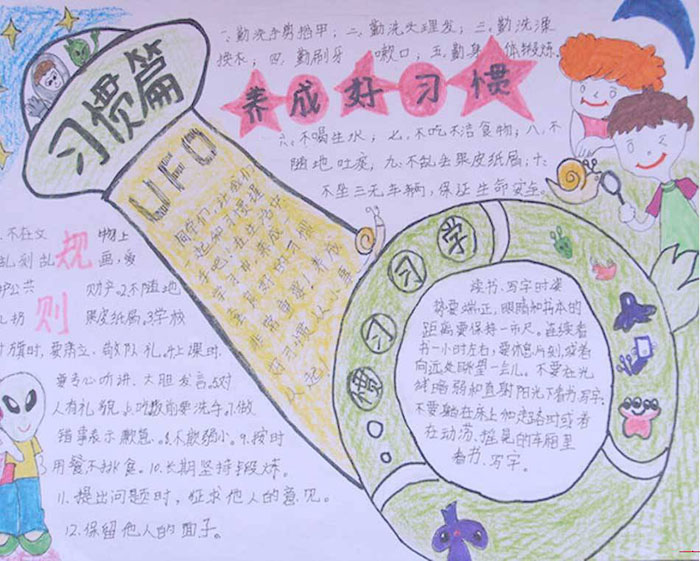 一、勤洗手剪指甲；二、勤洗头理发；三、勤洗澡
换衣；四、勤刷牙 嗽口；五、勤 体锻炼.
养成好习惯
六、不喝生水；七、不吃不洁食物；八、不
随地吐痰，九、不乱丢果皮纸屑；十、
不坐三无车辆，保证生命安全。
习惯篇
UFO
同学们，让我们
起和习惯握
手吧！在生活中
学习中，养成
良好的习惯
非常重要！养成
好习惯从小事
做起！
规则
1.不在文物上
乱刻乱画，爱
护公共财产.2.不随地
乱扔果皮纸屑.3.学校
升旗时，要肃立、敬队礼.4.上课时
要专心听讲、大胆发言.5.对
人有礼貌.6.吃饭前要洗手.7.做
错事表示歉意.8.不能弱小.9.按时
用餐不挑食.10.长期坚持锻炼.
11.提出问题时，征求他人的意见.
12.保留他人的面子.
学习习惯
读书、写字时姿
势要端正，眼睛和书本的
距离要保持一市尺。连续看
书一小时左右，要休息片刻，或者
向远处眺望一会儿。不要在光
线暗弱和直射阳光下看书、写字.
不要躺在床上和走路时或者
在动荡、摇晃的车厢里
看书、写字。